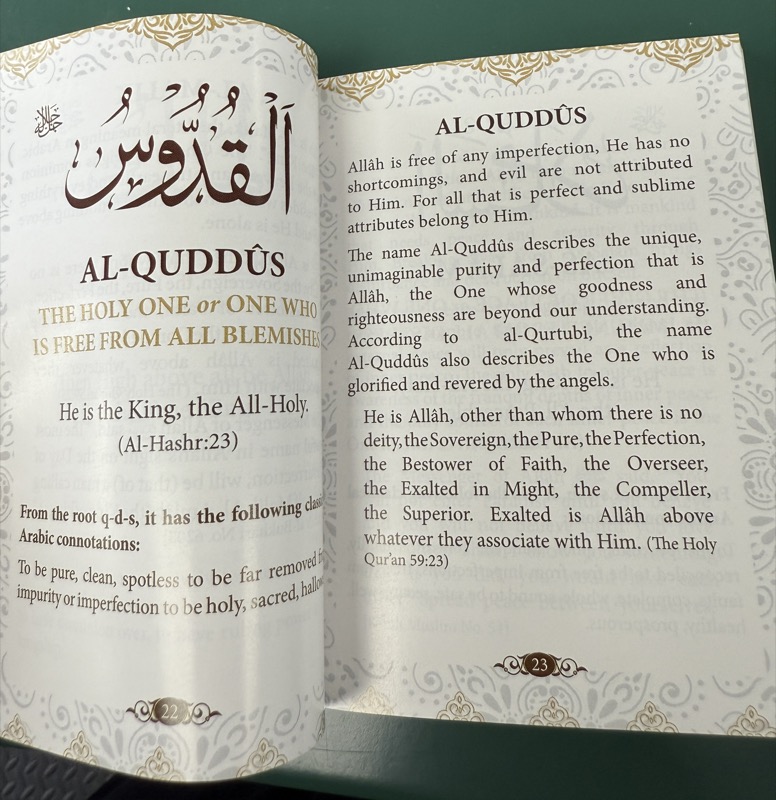 جل جلاله
اَلْقُدُّوسُ
AL-QUDDÛS
THE HOLY ONE or ONE WHO
IS FREE FROM ALL BLEMISHES
He is the King, the All-Holy.
(Al-Hashr:23)
From the root q-d-s, it has the following
Arabic connotations:
To be pure, clean, spotless to be far removed
impurity or imperfection to be holy, sacred,
22
AL-QUDDÛS
Allâh is free of any imperfection, He has no
shortcomings, and evil are not attributed
to Him. For all that is perfect and sublime
attributes belong to Him.
The name Al-Quddûs describes the unique,
unimaginable purity and perfection that is
Allâh, the One whose goodness and
righteousness are beyond our understanding.
According to al-Qurtubi, the name
Al-Quddûs also describes the One who is
glorified and revered by the angels.
He is Allâh, other than whom there is no
deity, the Sovereign, the Pure, the Perfection,
the Bestower of Faith, the Overseer,
the Exalted in Might, the Compeller,
the Superior. Exalted is Allâh above
whatever they associate with Him. (The Holy
Qur'an 59:23)
23